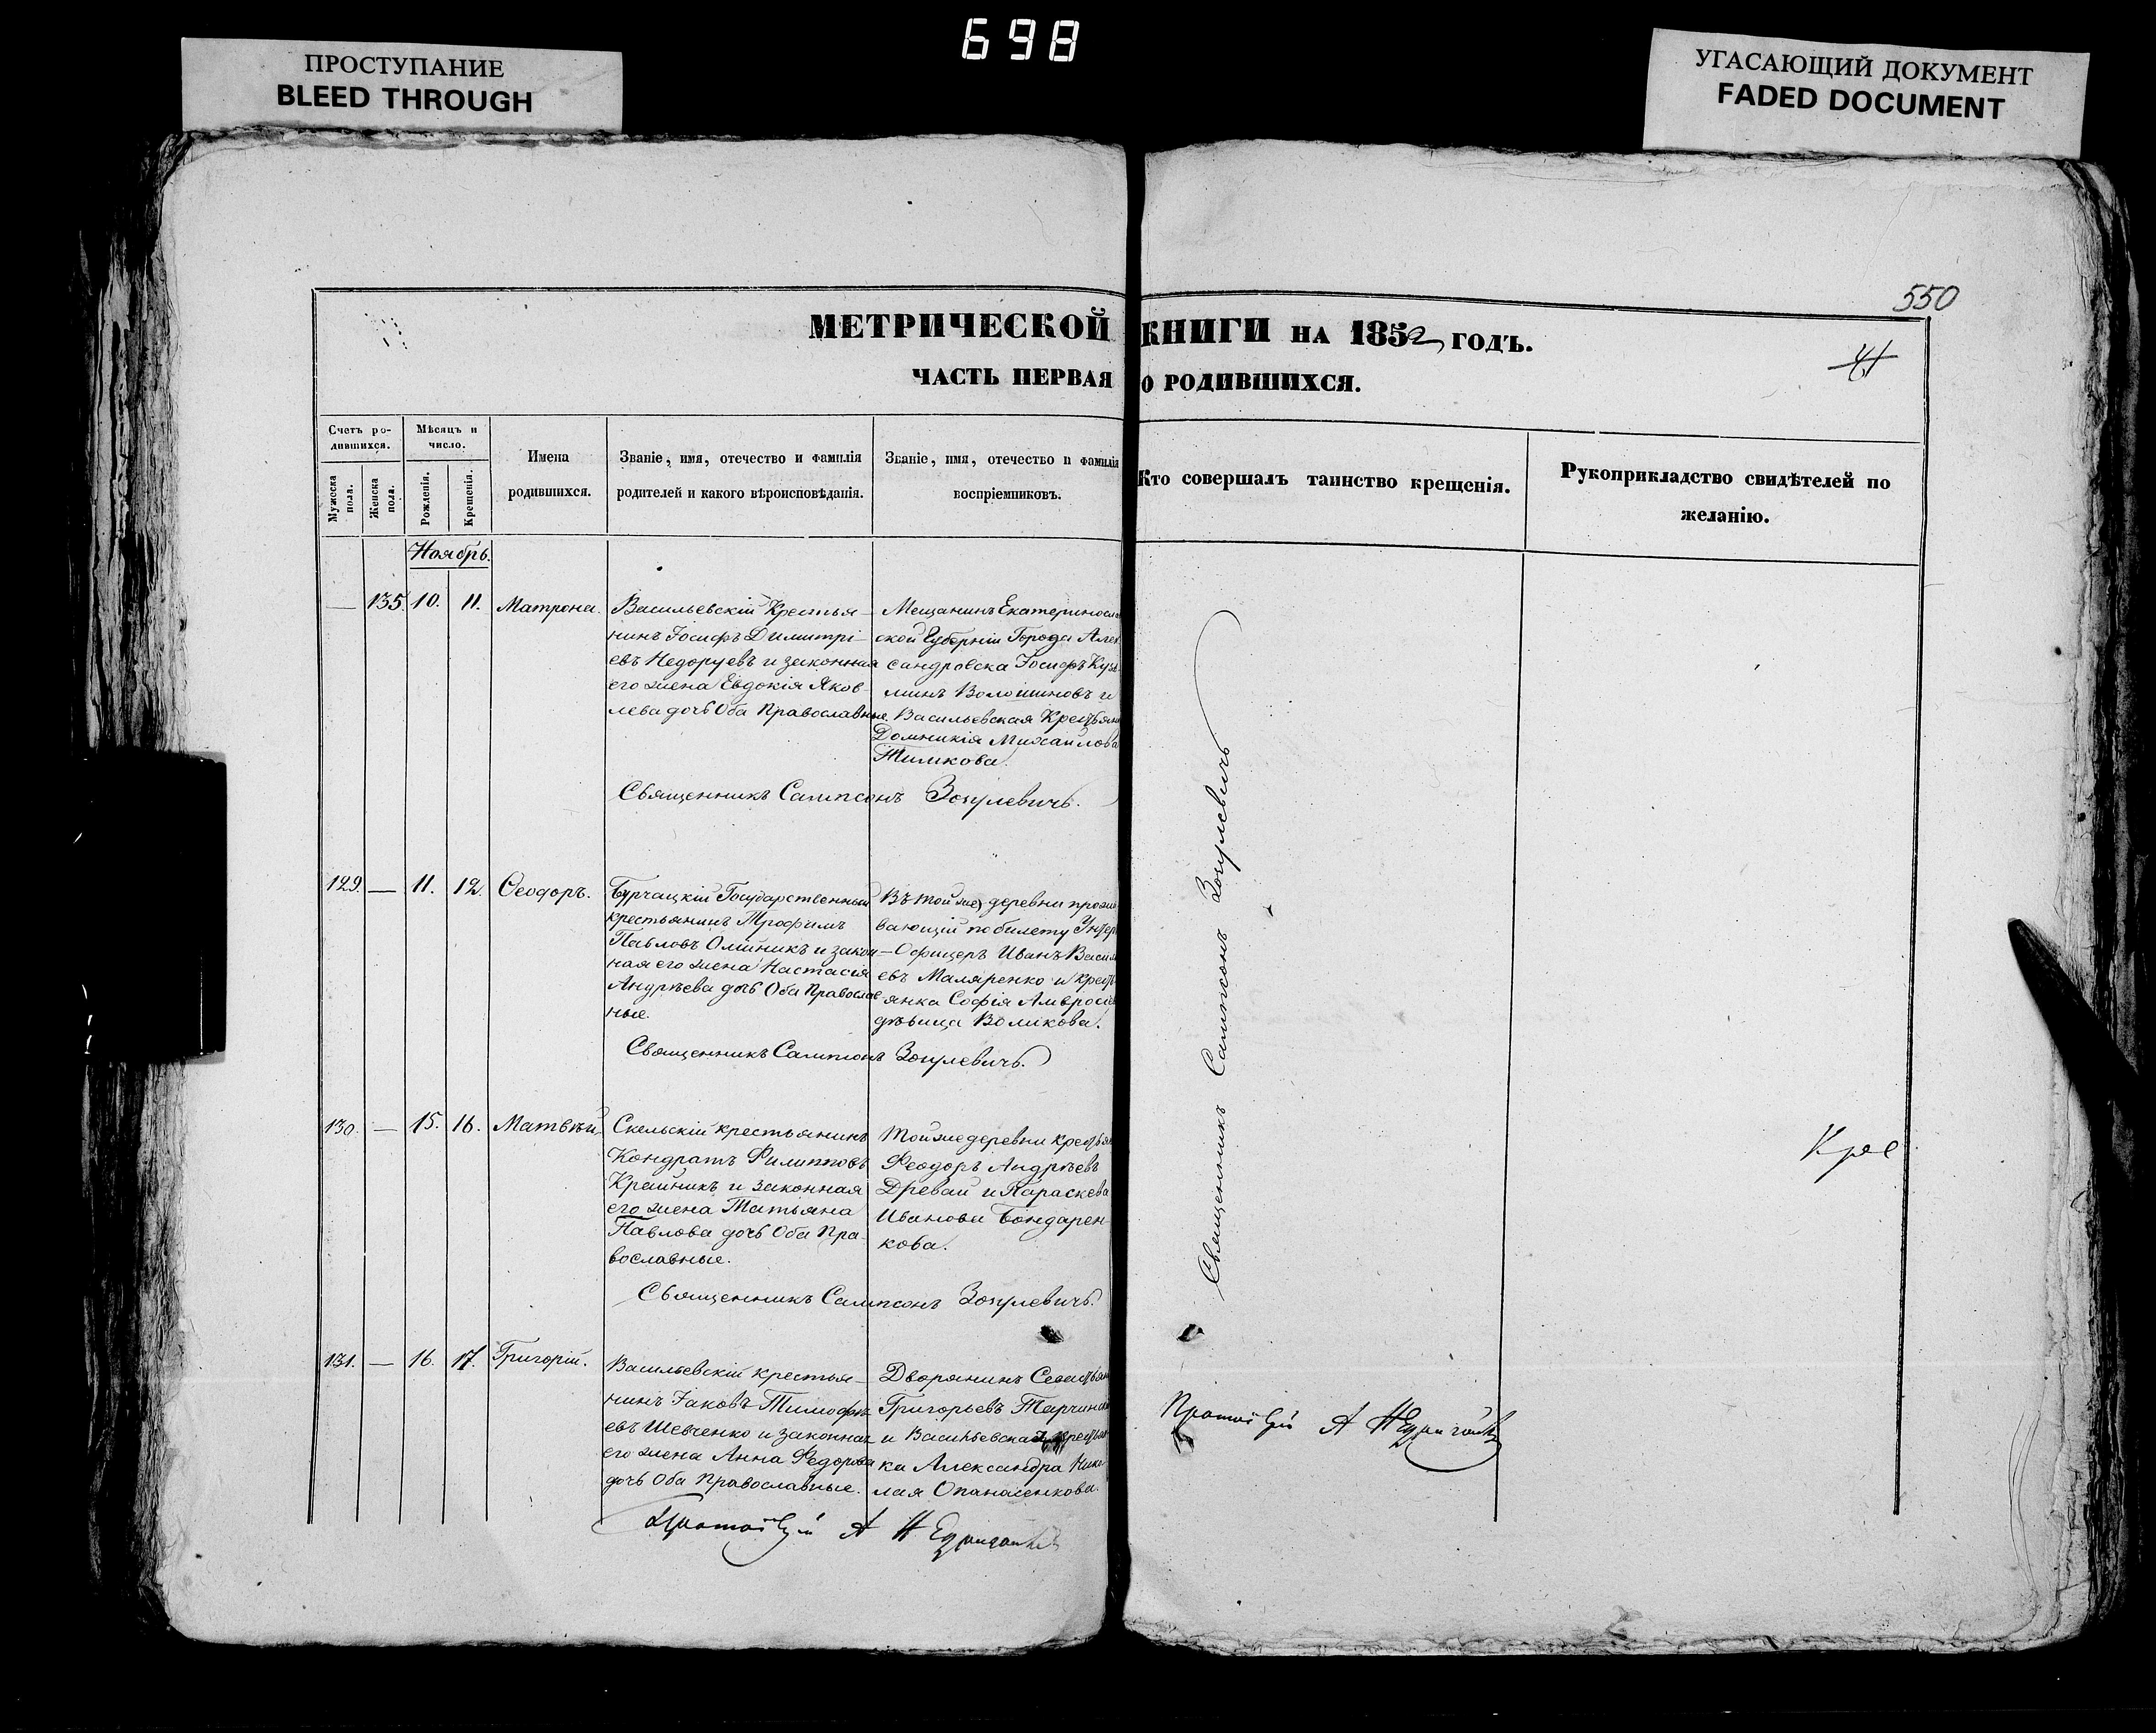 698
ПРОСТУПАНИЕ
BLEED THROUGH
УГАСАЮЩИЙ ДОКУМЕНТ
FADED DOCUMENT
550
МЕТРИЧЕСКОЙ КНИГИ НА 1852 ГОДЪ.
41
ЧАСТЬ ПЕРВАЯ О РОДИВШИХСЯ.
Счетъ ро-
дившихся.
Мужеска
пола.
Женска
пола.
Мѣсяцъ и
число.
Рожденія.
Крещенія.
Имена
родившихся.
Званіе, имя, отечество и фамилія
родителей и какого вѣроисповѣданія.
Званіе, имя, отечество и фамилія
воспріемниковъ.
Кто совершалъ таинство крещенія.
Рукоприкладство свидѣтелей по
желанію.
Ноябрь.
— 135. 10. 11. Матрона.
Васильевскій Крестья-
нинъ Іосифъ Димитрі-
евъ Недоруевъ и законная
его жена Евдокія Яков-
лева дочь Оба Православные.
Мещанинъ Екатериносла
ской Губерніи Города Алек
сандровска Іосифъ Кузь
минъ Волошиновъ и
Васильевская Крестьян
Домникія Михайлова
Тимкова.
Священникъ Сампсонъ Зогулевичъ.
129. — 11. 12. Ѳеодоръ.
Бурчацкій Государственный
крестьянинъ Трофимъ
Павловъ Олійникъ и закон
ная его жена Настасія
Андрѣева дочь Оба Православ
ные.
Въ той же деревни прожи
вающій по билету Унтер
—Офицеръ Иванъ Васил
евъ Маляренко и крестъ
янка Софія Амвросіе
дѣвица Волкова.
Священникъ Сампсонъ Зогулевичъ.
130. — 15. 16. Матвѣй.
Скельскій крестьянинъ
Кондратъ Филипповъ
Крайникъ и законная
его жена Татьяна
Павлова дочь Оба Пра-
вославные.
Той же деревни крестья
Феодоръ Андрѣевъ
Древаи и Параскева
Иванова Бондарен-
кова.
Священникъ Сампсонъ Зогулевичъ.
131. — 16. 17. Григорій.
Васильевскій крестья-
нинъ Іаковъ Тимофѣ
евъ Шевченко и законная
его жена Анна Федорова
дочь Оба Православные.
Дворянинъ Севастьян
Григорьевъ Тарчинск
и Васильевская крестьян
ка Александра Нико
лая Опанасенкова.
Протоіерей А
Священникъ Сампсонъ Зогулевичъ
Протоіерей А
Кре